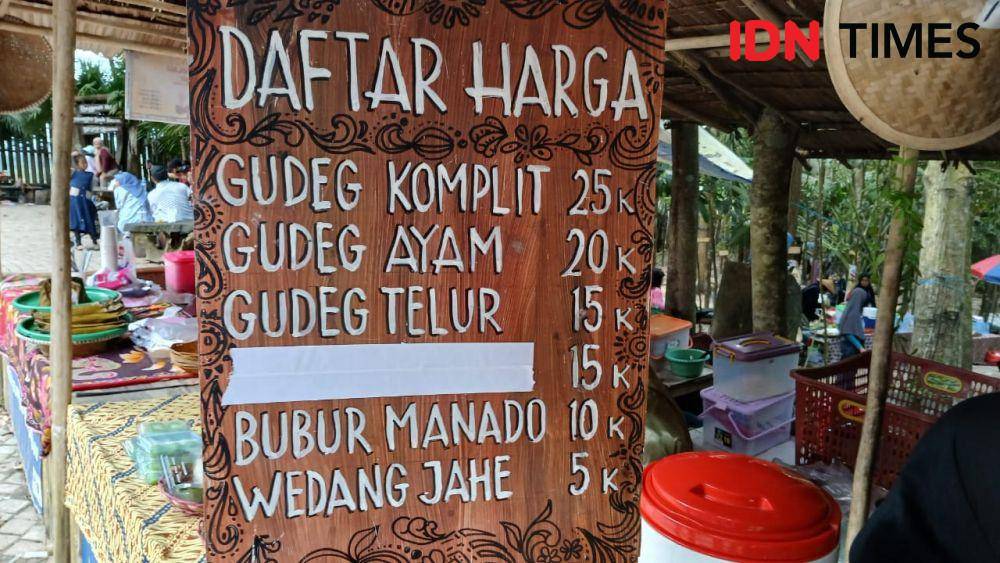 IDN TIMES
DAFTAR HARGA
GUDEG KOMPLIT 25K
GUDEG AYAM 20K
GUDEG TELUR 15K
15K
BUBUR MANADO 10K
WEDANG JAHE 5K